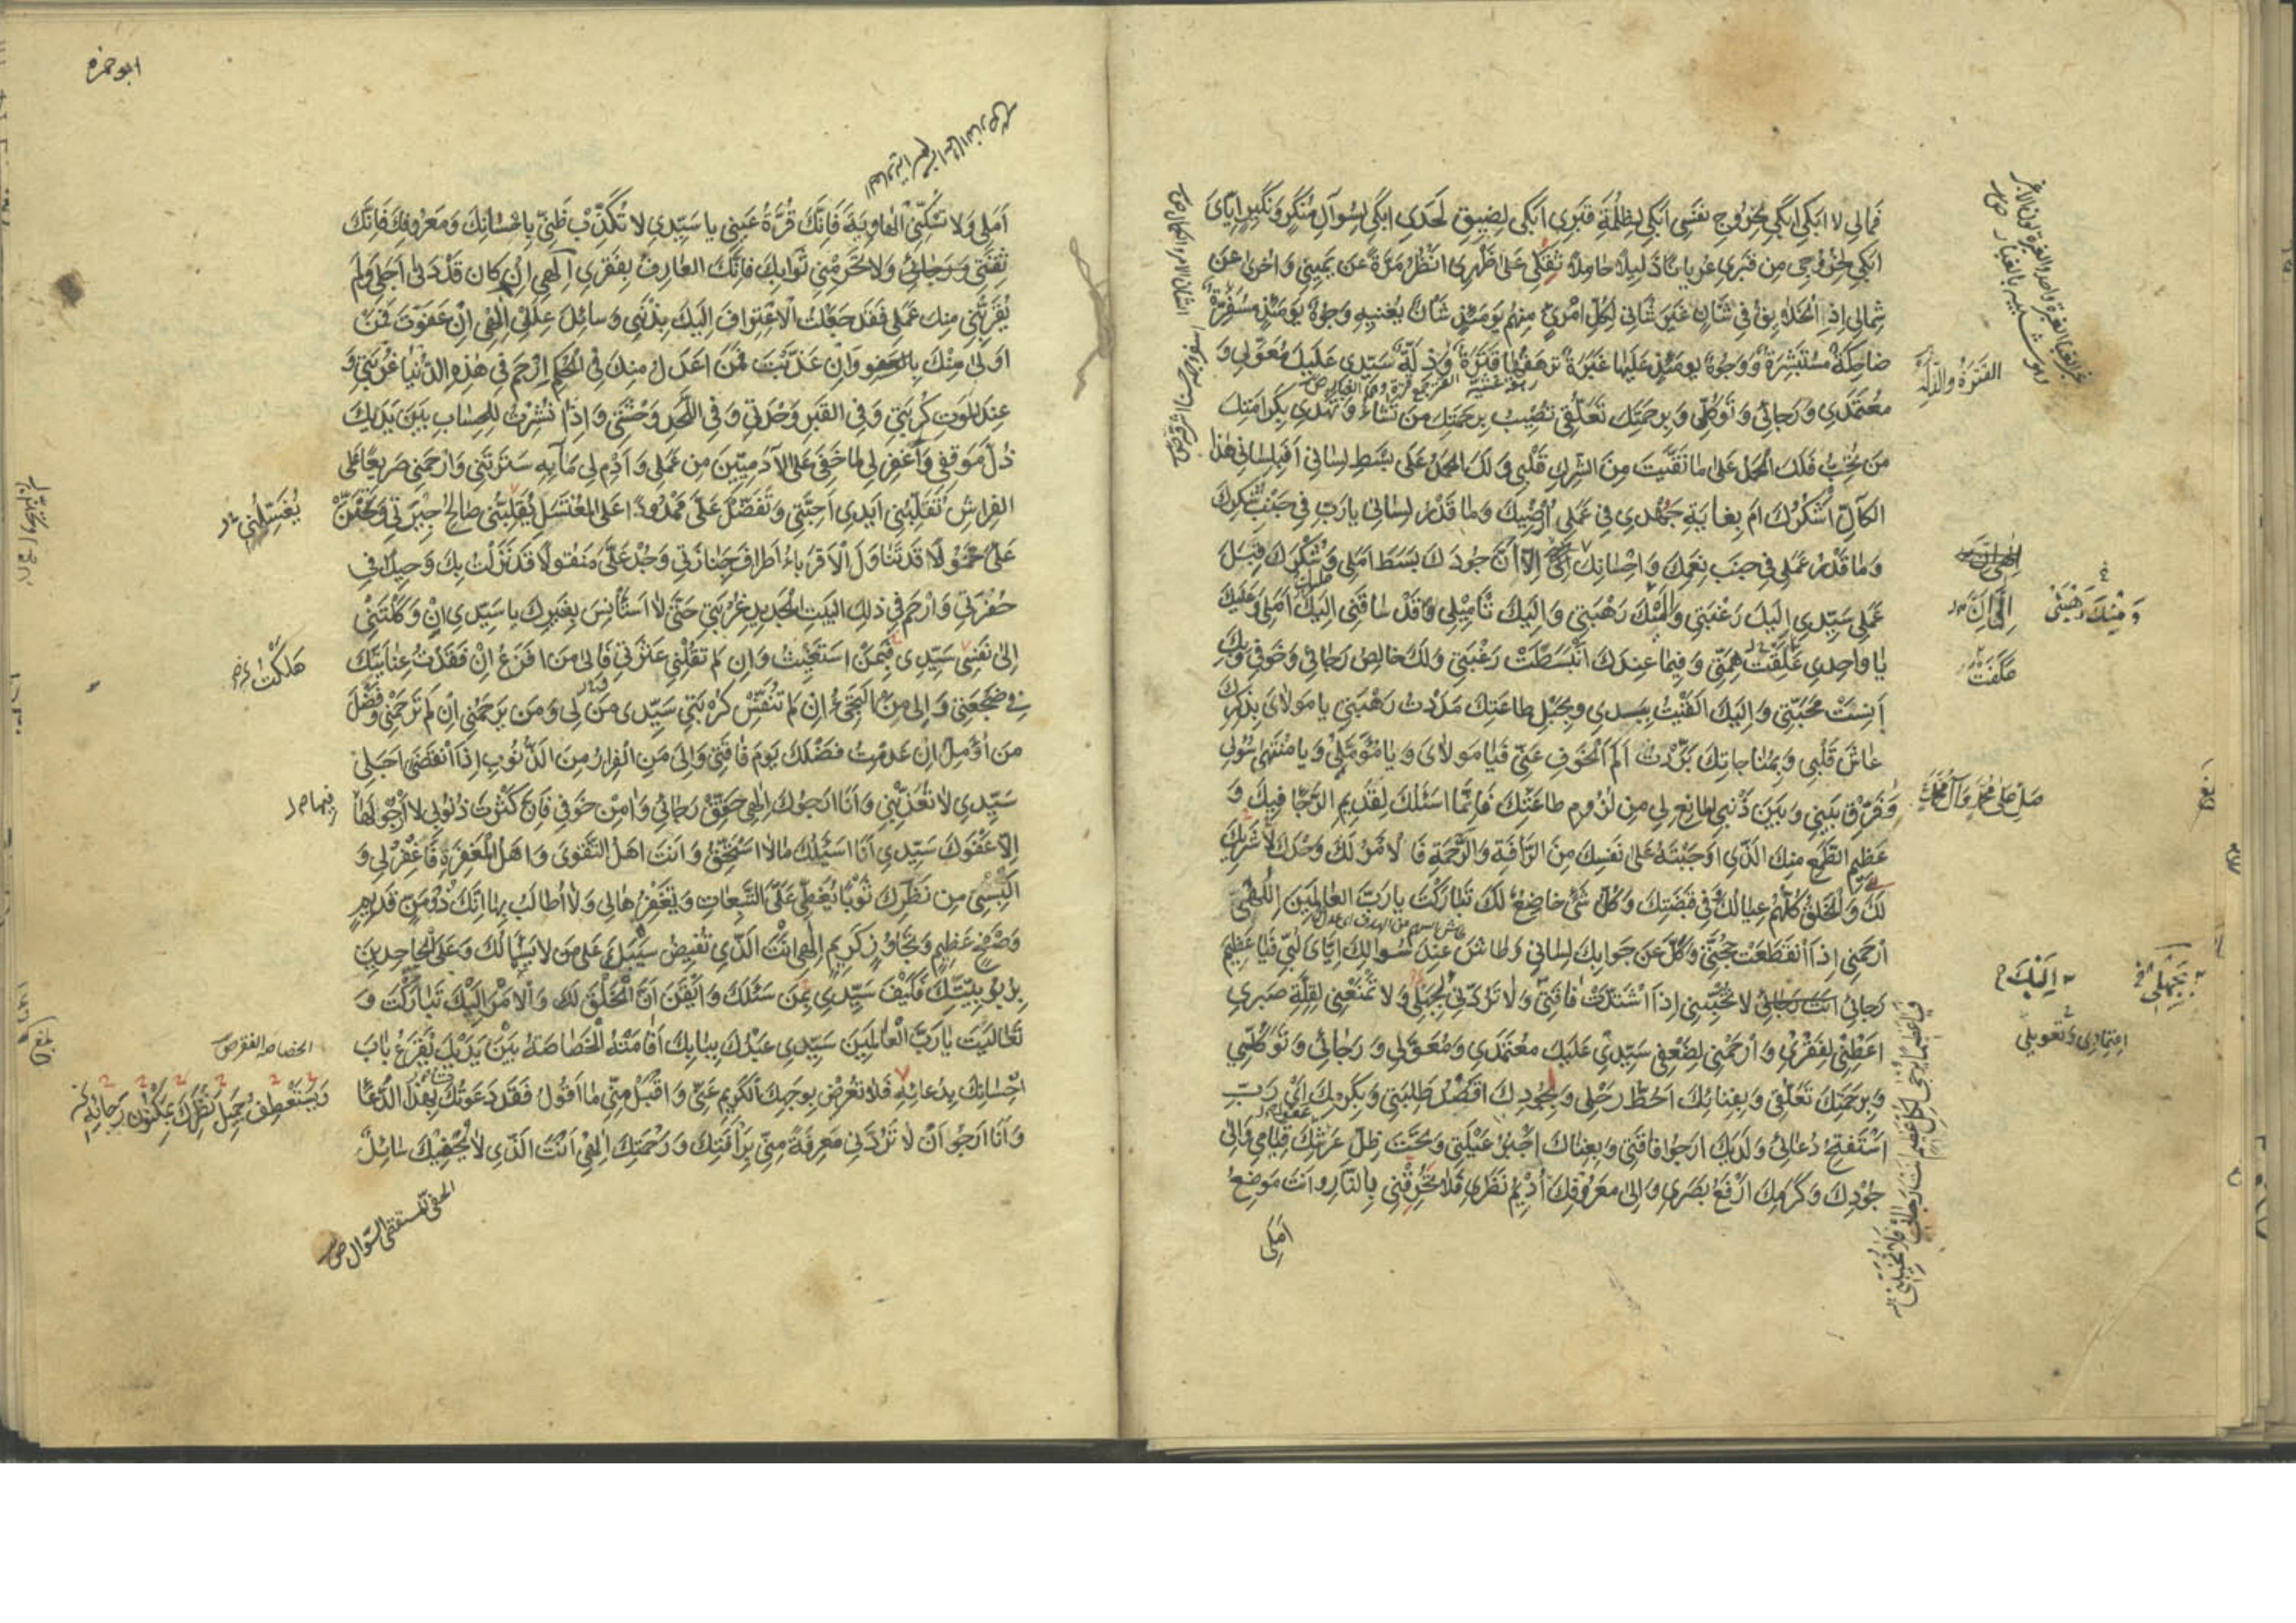 فَمالِي لا اَبْكِي اَبْكِي لِخُرُوجِ نَفْسِي اَبْكِي لِظُلْمَةِ قَبْرِي اَبْكِي لِضِيقِ لَحَدِي اَبْكِي لِسُؤآلِ مُنْكَرٍ وَنَكِيرٍ اِيّايَ
اَبْكِي لِخُرُوجِي مِن قَبْرِي عُرْيانًا ذَلِيلًا حامِلًا ثِقْلِي عَلىٰ ظَهْرِي اَنْظُرُ مَرَّةً عَن يَمِينِي وَاُخْرىٰ عَن
شِمالِي اِذِ الْخَلائِقُ فِي شَأنٍ غَيْرِ شَأنِي لِكُلِّ امْرِئٍ مِنْهُم يَوْمَئِذٍ شَأنٌ يُغْنِيهِ وُجُوهٌ يَوْمَئِذٍ مُسْفِرَةٌ
ضاحِكَةٌ مُسْتَبْشِرَةٌ وَوُجُوهٌ يَوْمَئِذٍ عَلَيْها غَبَرَةٌ تَرْهَقُها قَتَرَةٌ وَذِلَّةٌ سَيِّدِي عَلَيْكَ مُعَوَّلِي وَ
مُعْتَمَدِي وَرَجائِي وَتَوَكُّلِي وَبِرَحْمَتِكَ تَعَلُّقِي تُصِيبُ بِرَحْمَتِكَ مَن تَشاءُ وَتَهْدِي بِكَرامَتِكَ
مَن تُحِبُّ فَلَكَ الْحَمْدُ عَلىٰ ما نَقَّيْتَ مِنَ الشِّركِ قَلْبِي وَلَكَ الْحَمْدُ عَلىٰ بَسْطِ لِسانِي اَفَبِلِسانِي هٰذا
الكآلِّ اَشْكُرُكَ اَم بِغايَةِ جَهْدِي فِي عَمَلِي اُرْضِيكَ وَما قَدْرُ لِسانِي يارَبِّ فِي جَنْبِ شُكْرِكَ
وَما قَدْرُ عَمَلِي فِي جَنْبِ نِعَمِكَ وَاِحْسانِكَ اِلّا اَنَّ جُودَكَ بَسَطَ اَمَلِي وَشُكْرَكَ قَبِلَ
عَمَلِي سَيِّدِي اِلَيْكَ رَغْبَتِي وَاِلَيْكَ رَهْبَتِي وَاِلَيْكَ تَأْمِيلِي وَقَدْ ساقَنِي اِلَيْكَ اَمَلِي وَعَلَيْكَ
يا واحِدِي عَلِقَتْ هِمَّتِي وَفِيما عِنْدَكَ انْبَسَطَتْ رَغْبَتِي وَلَكَ خالِصُ رَجائِي وَخَوْفِي وَبِكَ
اَنِسَتْ مَحَبَّتِي وَاِلَيْكَ اَلْقَيْتُ بِيَدِي وَبِحَبْلِ طاعَتِكَ مَدَدْتُ رَهْبَتِي يا مَوْلايَ بِذِكْرِكَ
عاشَ قَلْبِي وَبِمُناجاتِكَ بَرَّدْتُ اَلَمَ الْخَوْفِ عَنِّي فَيا مَولايَ وَيا مُؤَمَّلِي وَيا مُنْتَهىٰ سُولِي
وَفَرِّقْ بَيْنِي وَبَيْنَ ذَنْبِي المانِعِ لِي مِن لُزُومِ طاعَتِكَ فَاِنَّما اَسْئَلُكَ لِقَدِيمِ الرَّجا فِيكَ وَ
عَظِيمِ الطَّمَعِ مِنكَ الَّذِي اَوْجَبْتَهُ عَلىٰ نَفْسِكَ مِنَ الرَّأفَةِ وَالرَّحْمَةِ فَالاَمْرُ لَكَ وَحْدَكَ لا شَرِيكَ
لَكَ وَالْخَلْقُ كُلُّهُمْ عِيالُكَ وَفِي قَبْضَتِكَ وَكُلُّ شَيْءٍ خاضِعٌ لَكَ تَبارَكْتَ يارَبَّ العالَمِينَ اِلٰهِي
اَرْحَمْنِي اِذا انْقَطَعَتْ حُجَّتِي وَكَلَّ عَن جَوابِكَ لِسانِي وَطاشَ عِنْدَ سُوالِكَ اِيّايَ لُبِّي فَيا عَظِيمَ
رَجائِي لا تُخَيِّبْنِي اِذا اشْتَدَّتْ فاقَتِي وَلا تَرُدَّنِي لِجَهْلِي وَلا تَمْنَعْنِي لِقِلَّةِ صَبْرِي
اَعْطِنِي لِفَقْرِي وَارْحَمْنِي لِضَعْفِي سَيِّدِي عَلَيْكَ مُعْتَمَدِي وَمُعَوَّلِي وَرَجائِي وَتَوَكُّلِي
وَبِرَحْمَتِكَ تَعَلُّقِي وَبِفِنائِكَ اَحُطُّ رَحْلِي وَبِجُودِكَ اَقْصُدُ طَلِبَتِي وَبِكَرَمِكَ اَيْ رَبِّ
اَسْتَفْتِحُ دُعائِي وَلَدَيْكَ اَرْجُوا فاقَتِي وَبِغِناكَ اَجْبُرُ عَيْلَتِي وَتَحْتَ ظِلِّ عَرْشِكَ قِيامِي وَاِلىٰ
جُودِكَ وَكَرَمِكَ اَرْفَعُ بَصَرِي وَاِلىٰ مَعْرُوفِكَ اُدِيمُ نَظَرِي فَلا تُحْرِقْنِي بِالنّارِ وَاَنْتَ مَوْضِعُ
اَمَلِي
القَتَرَةُ وَالذِّلَّةُ
وَمِنْكَ رَهْبَتِي
عَكَفَتْ
صَلِّ عَلىٰ مُحَمَّدٍ وَآلِ مُحَمَّدٍ
اِلَيْكَ
بِجَهْلِي
اِعْتِمادِي وَتَعْوِيلِي
ابوحمزه
اَمَلِي وَلا تُسْكِنِّي الْهاوِيَةَ فَاِنَّكَ قُرَّةُ عَيْنِي يا سَيِّدِي لا تُكَذِّبْ ظَنِّي بِاِحْسانِكَ وَمَعْرُوفِكَ فَاِنَّكَ
ثِقَتِي وَرَجائِي وَلا تَحْرِمْنِي ثَوابَكَ فَاِنَّكَ العارِفُ بِفَقْرِي اِلٰهِي اِنْ كانَ قَدْ دَنىٰ اَجَلِي وَلَمْ
يُقَرِّبْنِي مِنكَ عَمَلِي فَقَدْ جَعَلْتُ الْاِعْتِرافَ اِلَيْكَ بِذَنْبِي وَسائِلَ عِلَلِي اِلٰهِي اِنْ عَفَوْتَ فَمَنْ
اَوْلىٰ مِنْكَ بِالعَفْوِ وَاِنْ عَذَّبْتَ فَمَنْ اَعْدَلُ مِنكَ فِي الْحُكْمِ اِرْحَمْ فِي هٰذِهِ الدُّنْيا غُرْبَتِي وَ
عِنْدَ المَوْتِ كُرْبَتِي وَفِي القَبْرِ وَحْدَتِي وَفِي اللَّحْدِ وَحْشَتِي وَاِذا نُشِرْتُ لِلْحِسابِ بَيْنَ يَدَيْكَ
ذُلَّ مَوْقِفِي وَاغْفِرْ لِي ما خَفِيَ عَلَى الآدَمِيِّينَ مِن عَمَلِي وَاَدِمْ لِي مآ بِهِ سَتَرْتَنِي وَارْحَمْنِي صَرِيعًا عَلى
الفِراشِ تُقَلِّبُنِي اَيْدِي اَحِبَّتِي وَتَفَضَّلْ عَلَيَّ مَمْدُودًا عَلَى المُغْتَسَلِ يُقَلِّبُنِي صالِحُ جِيرَتِي وَتَحَنَّنْ
عَلَيَّ مَحْمُولًا قَدْ تَناوَلَ الْاَقْرِباءُ اَطْرافَ جَنازَتِي وَجُدْ عَلَيَّ مَنْقُولًا قَدْ نَزَلْتُ بِكَ وَحِيدًا فِي
حُفْرَتِي وَارْحَمْ فِي ذٰلِكَ البَيْتِ الْجَدِيدِ غُرْبَتِي حَتّىٰ لا اَسْتَأنِسَ بِغَيْرِكَ يا سَيِّدِي اِنْ وَكَلْتَنِي
اِلىٰ نَفْسِي سَيِّدِي فَبِمَنْ اَسْتَغِيثُ وَاِن لَمْ تُقِلْنِي عَثْرَتِي فَاِلىٰ مَنْ اَفْزَعُ اِنْ فَقَدْتُ عِنايَتَكَ
فِي ضَجْعَتِي وَاِلىٰ مَنْ اَلْتَجِئُ اِنْ لَمْ تُنَفِّسْ كُرْبَتِي سَيِّدِي مَنْ لِي وَمَنْ يَرْحَمُنِي اِنْ لَمْ تَرْحَمْنِي وَفَضْلَ
مَنْ اُؤَمِّلُ اِنْ عَدِمْتُ فَضْلَكَ يَوْمَ فاقَتِي وَاِلىٰ مَنِ الْفِرارُ مِنَ الذُّنُوبِ اِذا انْقَضىٰ اَجَلِي
سَيِّدِي لا تُعَذِّبْنِي وَاَنَا اَرْجُوكَ اِلٰهِي حَقِّقْ رَجائِي وَآمِنْ خَوْفِي فَاِنَّ كَثْرَتَ ذُنُوبِي لا اَرْجُو لَها
اِلّا عَفْوَكَ سَيِّدِي اَنَا اَسْئَلُكَ مالا اَسْتَحِقُّ وَاَنْتَ اَهْلُ التَّقْوىٰ وَاَهْلُ الْمَغْفِرَةِ فَاغْفِرْ لِي وَ
اَلْبِسْنِي مِن نَظَرِكَ ثَوْبًا يُغَطِّي عَلَيَّ التَّبِعاتِ وَتَغْفِرُها لِي وَلا اُطالَبُ بِها اِنَّكَ ذُو مَنٍّ قَدِيمٍ
وَصَفْحٍ عَظِيمٍ وَتَجاوُزٍ كَرِيمٍ اِلٰهِي اَنْتَ الَّذِي تُفِيضُ سَيْبَكَ عَلىٰ مَن لا يَسْأَلُكَ وَعَلَى الْجاحِدِينَ
بِرُبُوبِيَّتِكَ فَكَيْفَ سَيِّدِي بِمَنْ سَئَلَكَ وَاَيْقَنَ اَنَّ الْخَلْقَ لَكَ وَالْاَمْرَ اِلَيْكَ تَبارَكْتَ وَ
تَعالَيْتَ يارَبَّ الْعالَمِينَ سَيِّدِي عَبْدُكَ بِبابِكَ اَقامَتْهُ الْخَصاصَةُ بَيْنَ يَدَيْكَ يَقْرَعُ بابَ
اِحْسانِكَ بِدُعائِهِ فَلا تُعْرِضْ بِوَجْهِكَ الْكَرِيمِ عَنِّي وَاقْبَلْ مِنِّي ما اَقُولُ فَقَدْ دَعَوْتُكَ بِهٰذَا الدُّعا
وَاَنَا اَرْجُو اَنْ لا تَرُدَّنِي مَعْرِفَةً مِنِّي بِرَأْفَتِكَ وَرَحْمَتِكَ اِلٰهِي اَنْتَ الَّذِي لا يُحْفِيكَ سائِلٌ
يُغَسِّلُنِي
هَلَكْتُ
الخصاصة الفقر ص
وَيَسْتَعْطِفُ جَمِيلَ نَظَرِكَ بِمَكْنُونِ رَجائِهِ